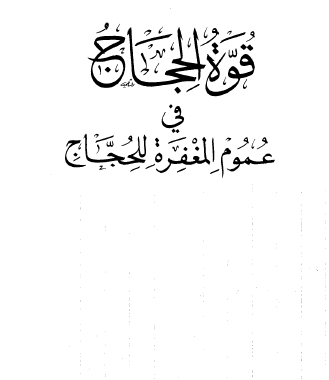 قُوَّةُ الحِجَاجُ
في
عُمُومِ المَغْفِرَةِ لِلحُجَّاجِ